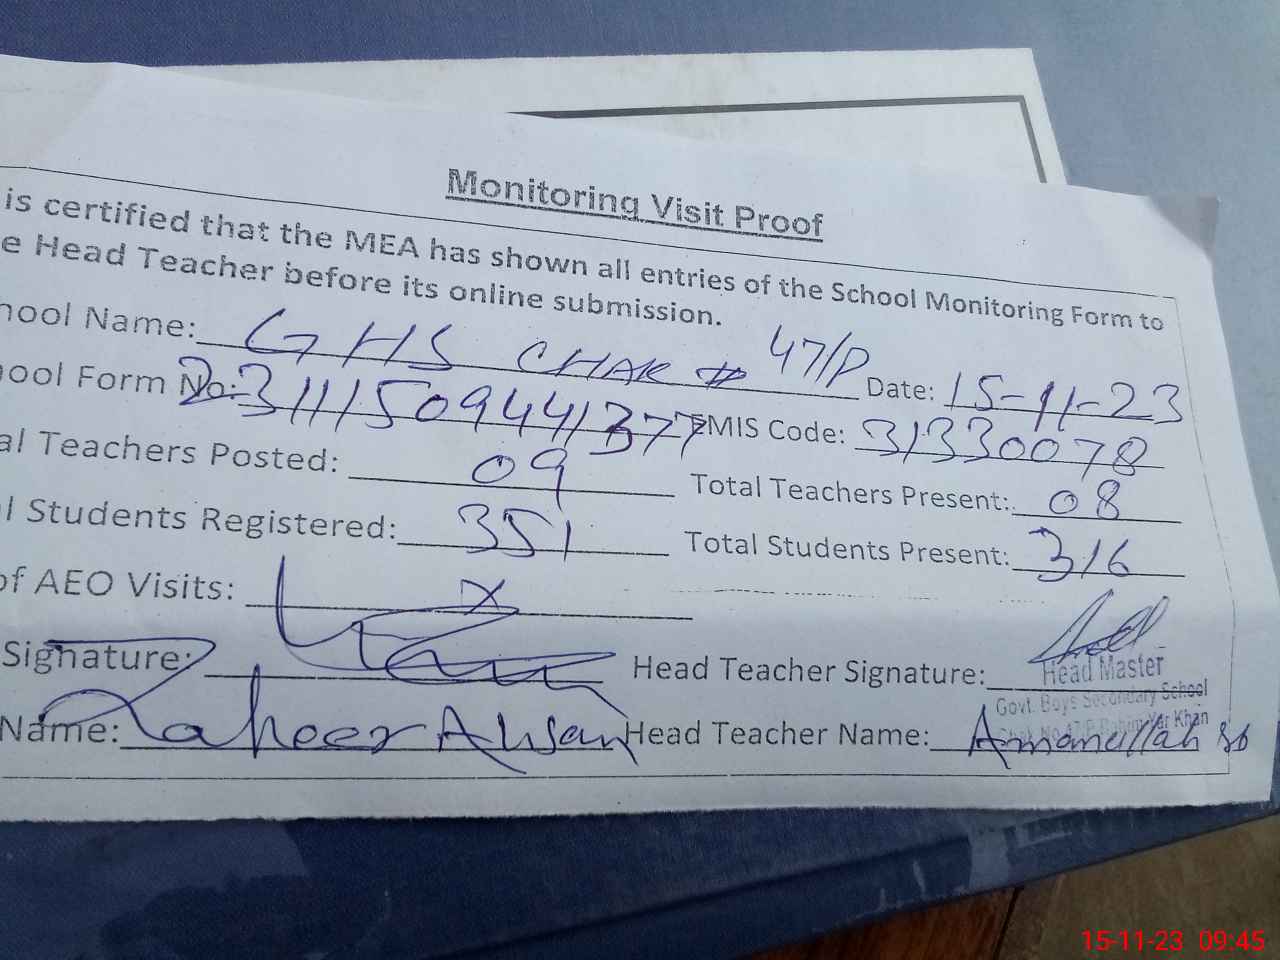 Monitoring Visit Proof
is certified that the MEA has shown all entries of the School Monitoring Form to
e Head Teacher before its online submission.
hool Name: GHS CHAK # 47/P Date: 15-11-23
ool Form No: 23111509441377 EMIS Code: 31330078
al Teachers Posted: 09 Total Teachers Present: 08
l Students Registered: 351 Total Students Present: 316
of AEO Visits: X
Signature: Head Teacher Signature:
Head Master
Govt. Boys Secondary School
Chak No.47.P Rahim Yar Khan
Name: Zaheer Ahsan Head Teacher Name: Amanullah
15-11-23 09:45